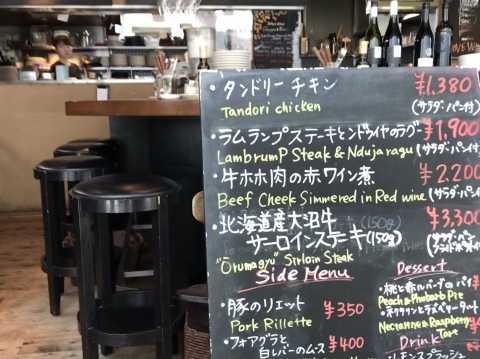 ・タンドリーチキン ¥1,380
Tandori chicken (サラダ・パン付)
・ラムランプステーキとンドゥイヤのラグー ¥1,900
Lambrump Steak & Nduja ragu (サラダ・パン付)
・牛ホホ肉の赤ワイン煮 ¥2,200
Beef Cheek Simmered in Red wine (サラダ・パン付)
・北海道産大沼牛 ¥3,300
サーロインステーキ(150g) (サラダ・パン
"Orumagyu" Sirloin Steak
Side Menu
・豚のリエット ¥350
Pork Rillette
・フォアグラと
白レバーのムース ¥400
Dessert
・桃と赤ルバーブのパイ
Peach & Rhubarb Pie
・ネクタリンとラズベリータルト
Nectarine & Raspberry
Tart
Drink